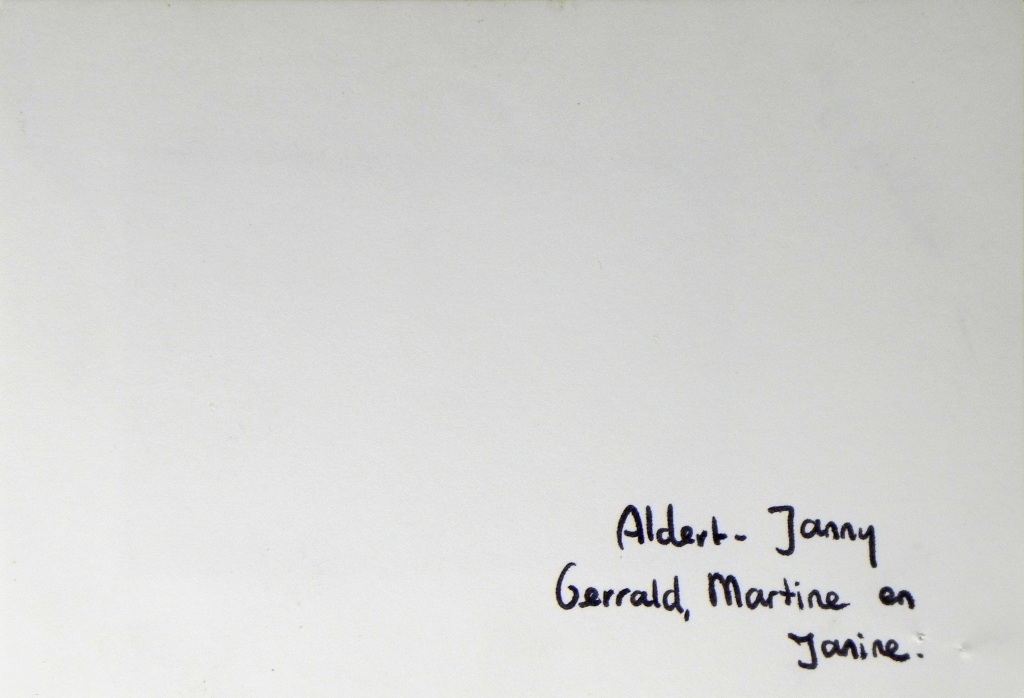 Aldert- Janny
Gerrald, Martine en
Janine.